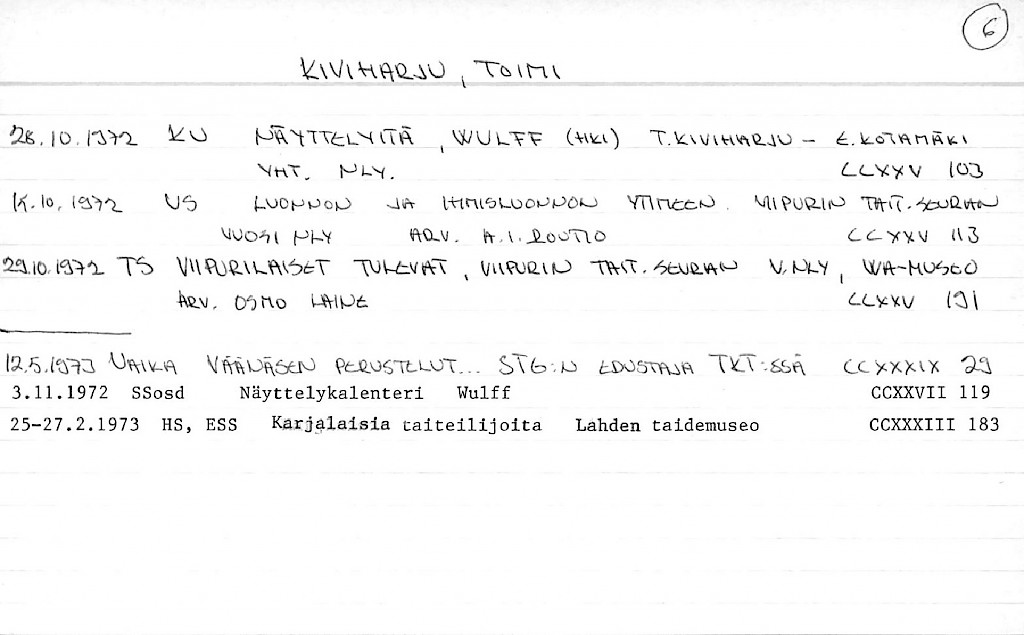 6
KIVIHARJU, TOIMI
28.10.1972 KU NÄYTTELYITÄ, WULFF (HKI) T.KIVIHARJU – E.KOTAMÄKI
YHT. NLY. CCXXV 103
15.10.1972 US LUONNON JA IHMISLUONNON YTIMEEN. VIIPURIN TAIT.SEURAN
VUOSI NLY ARV. A.I.ROUTIO CCXXV 113
29.10.1972 TS VIIPURILAISET TULEVAT, VIIPURIN TAIT.SEURAN V.NLY, WA-MUSEO
ARV. OSMO LAINE CCXXV 191
12.5.1973 VÄÄNÄSEN PERUSTELUT... STG:N EDUSTAJA TKT:SSÄ CCXXXIX 29
3.11.1972 SSosd Näyttelykalenteri Wulff CCXXVII 119
25-27.2.1973 HS, ESS Karjalaisia taiteilijoita Lahden taidemuseo CCXXXIII 183